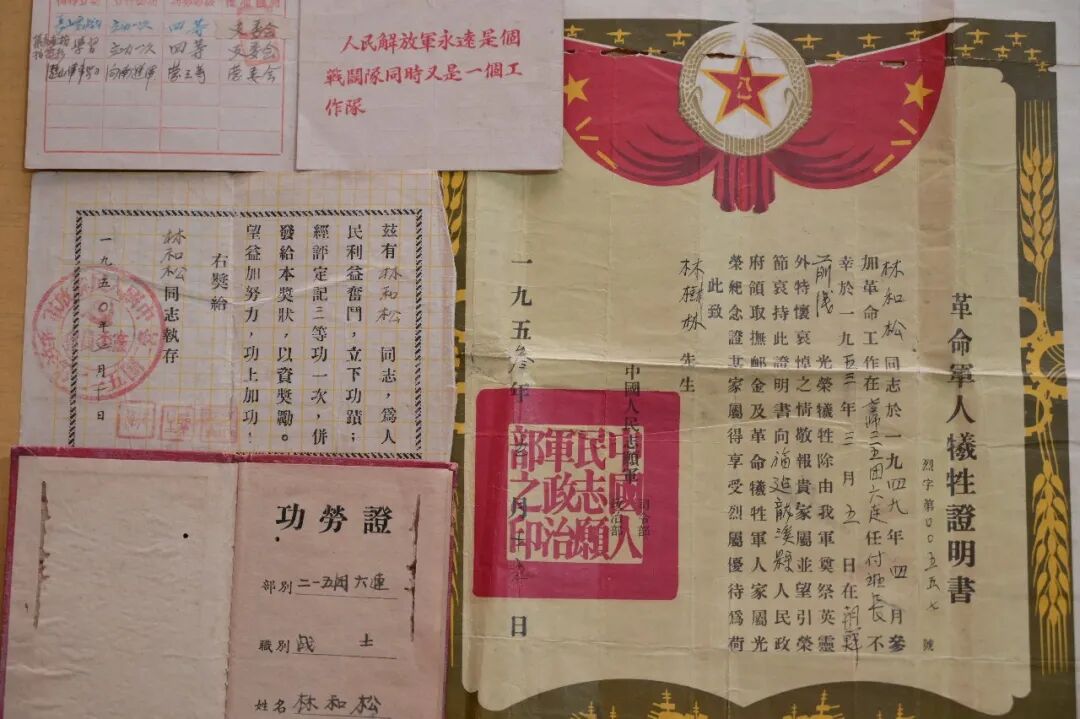 立功一次 四等 支委会
学習 立功一次 四等 支委会
向南進軍 營三等 营委会
人民解放軍永遠是個
戰鬪隊同時又是一個工
作隊
八一
革命軍人犧牲證明書
烈字第00五五七號
林和松同志於一九四九年四月參
加革命工作在二五团六连任付班长不
幸於一九五三年三月五日在朝鲜
前线光榮犧牲除由我軍奠祭英靈
外特懷哀悼之情敬報貴家屬並望引榮
節哀持此證明書向福建龍溪縣人民政
府領取撫卹金及革命犧牲軍人家屬光
榮紀念證書家屬得享受烈屬優待爲荷
此致
先生
中國人民志願軍
司令部
政治部
中國人民志願軍政治部之印
一九五叁年 月 日
茲有林和松同志,爲人
民利益奮鬥,立下功蹟;
經評定記三等功一次,併
發給本獎狀,以資獎勵。
望益加努力,功上加功!
右獎給
林和松同志執存
一九五〇年 月 日
功勞證
部別 二一五团六連
職別 战士
姓名 林和松